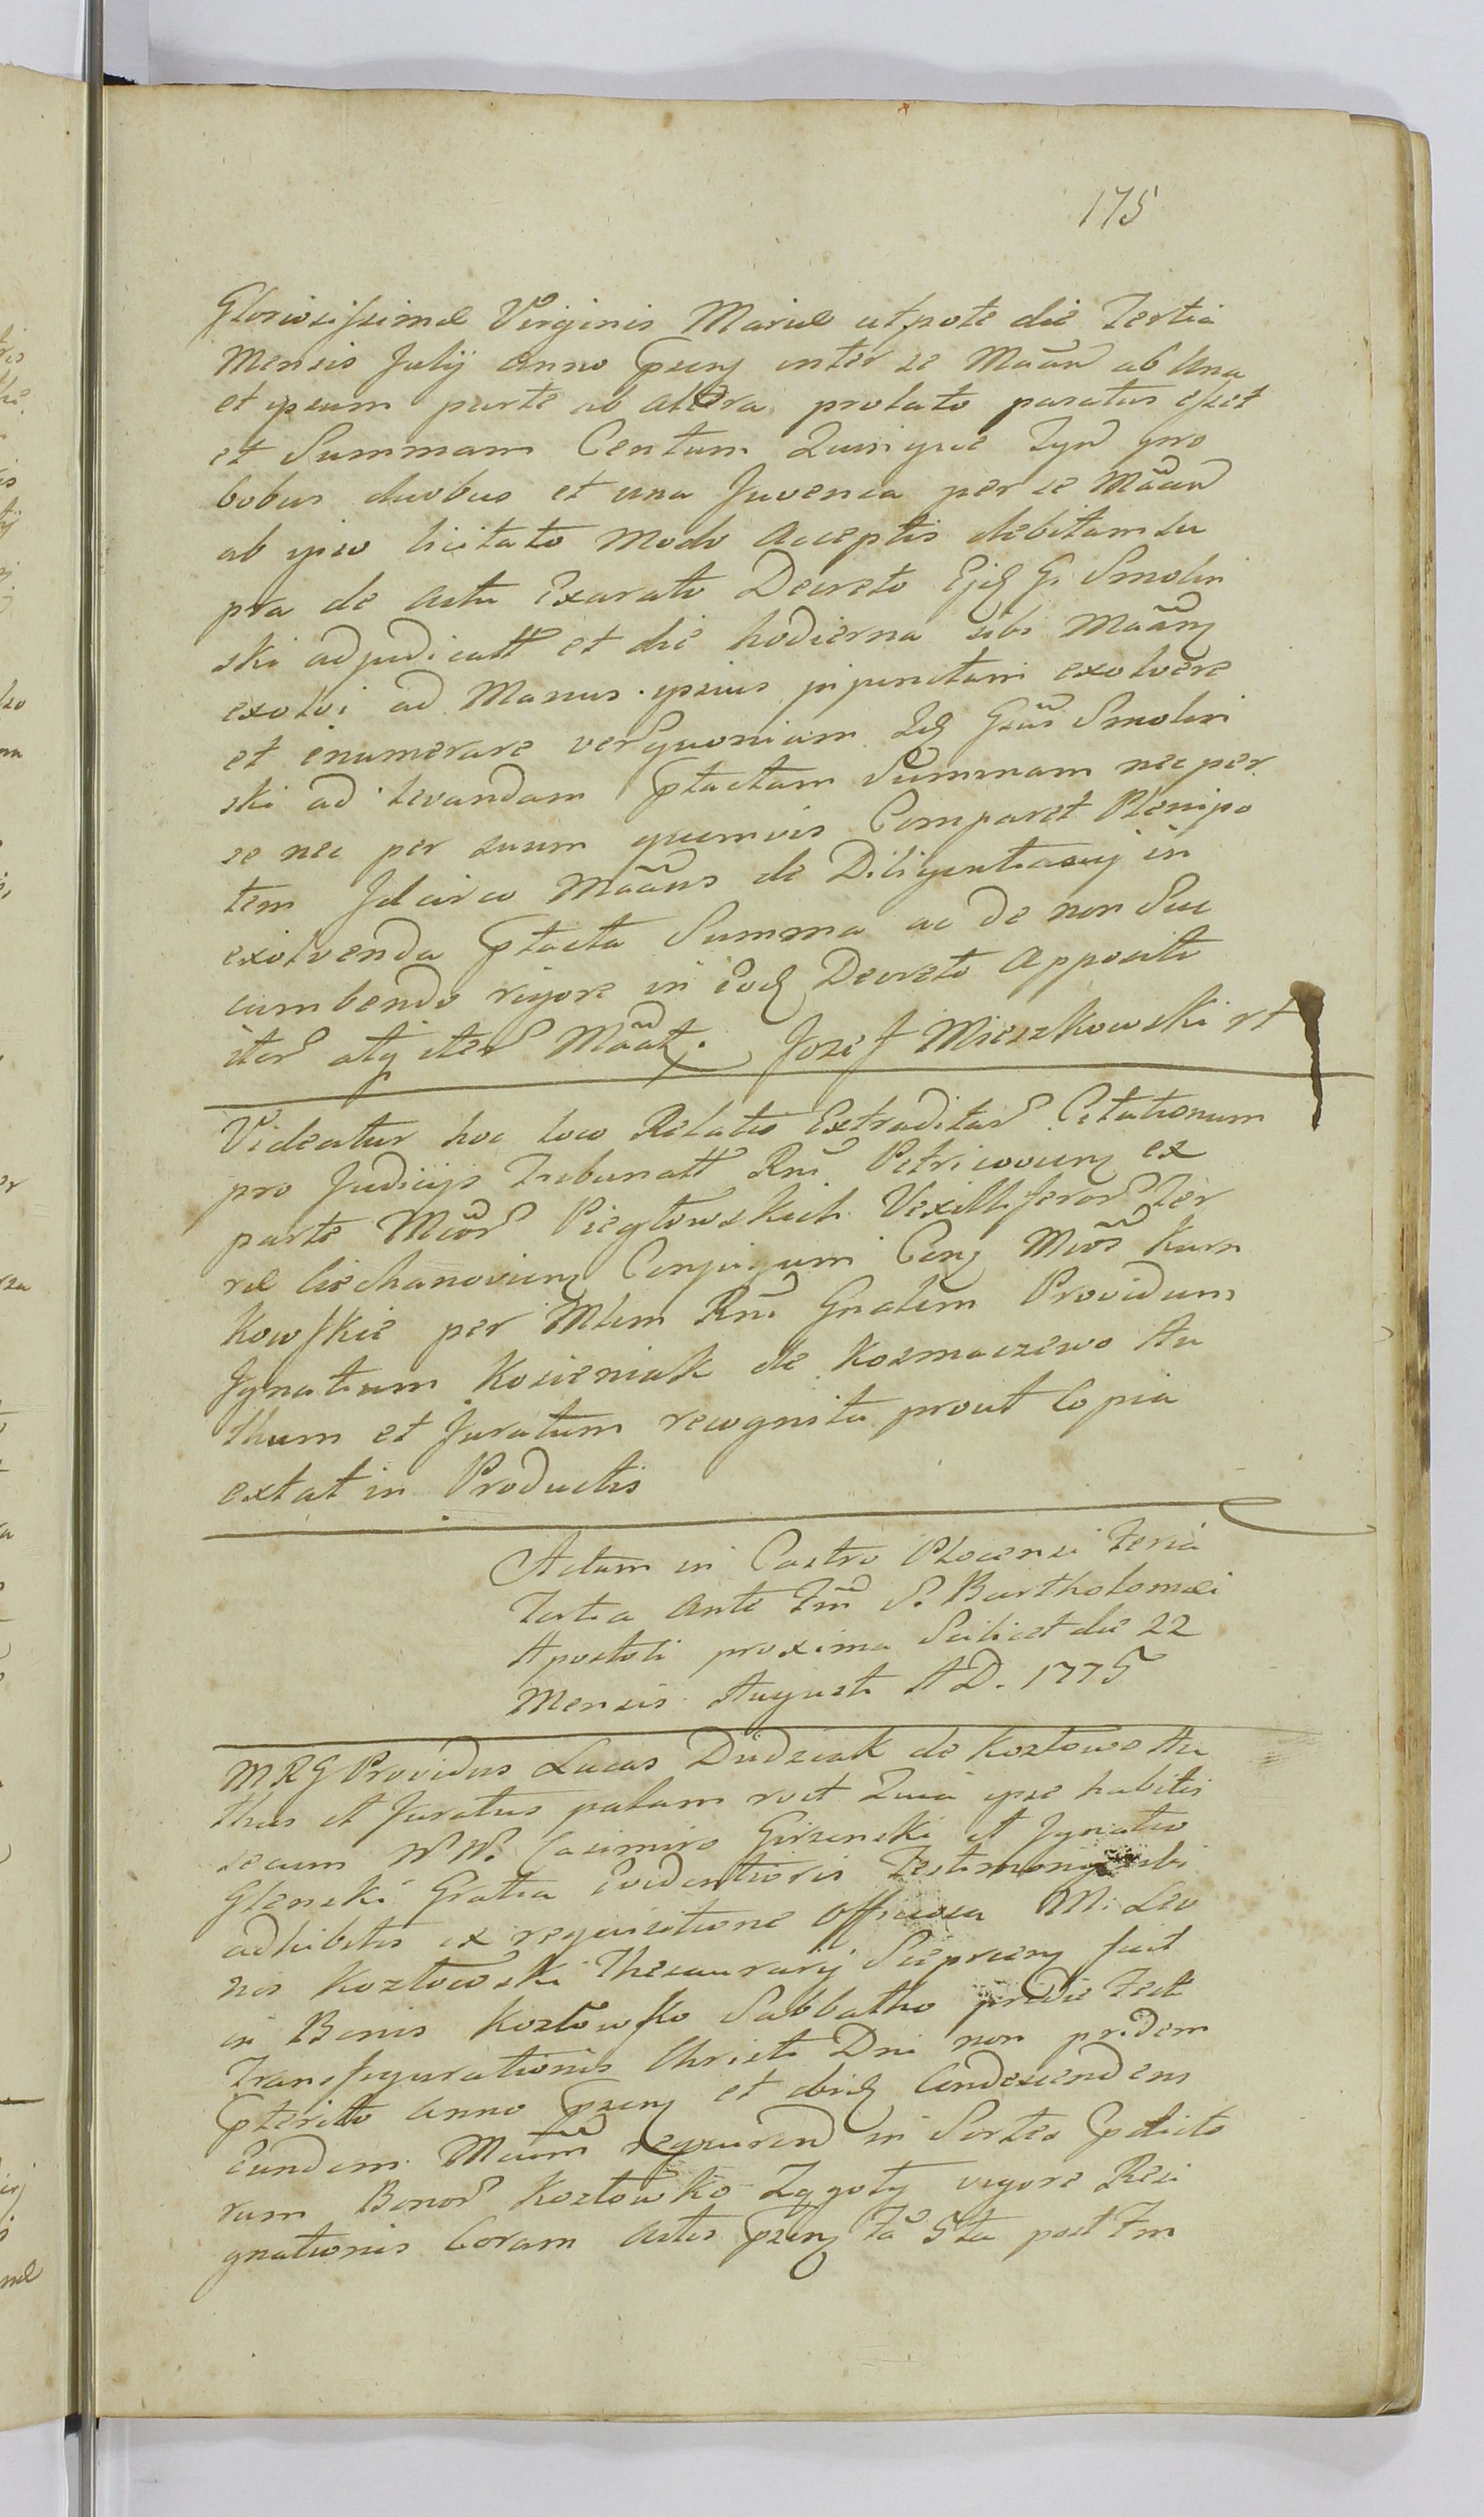 175
Gloriosissimæ Virginis Mariæ utpote die Tertia
Mensis Julij Anno Gpsenz inter se Maãn ab Una
et ipsum parte ab altera prolato paratus esset
et Summam Centum Quinque Tyn pro
bobus duobus et una Juvenca per se Mãan
ab ipso licitato modo Acceptis debitam su
pra de Actu Exarato Decreto Ejd G. Smolin
ski adjudicatt et die hodierna sibi Maãnz
exolvi ad Manus ipsius injunctam exolvere
et enumerare verq quoniam Id Gsũs Smolin
ski ad levandam Gptactam Summam nec per
se nec per suum quemvis Comparet Plenipo
tem Idcirco Maãns de Diligentia suj in
exolvenda Gptacta Summa ac de non Suc
cumbendo rigore in Eod Decreto Apposito
iter atq iter Mãat. Jozef Mieszkowski rt
Videatur hoc loco Relatio Extraditar Citationum
pro Judicijs Tribunatt Rni Petricovien ex
parte Mcor Piegłowskich Vexilliferor Ter
ræ Ciechanovien Conjugum Conz Mcõs Karn
kowskie per Mlem Rni Gnalem Providum
Ignatium Kosieniak de Kozmaczewo Au
thum et Juratum recognita prout Copia
extat in Productis
Actum in Castro Plocensi Feria
Tertia Ante Fm S. Bartholomæi
Apostoli proxima Scilicet die 22
Mensis Augusti A D. 1775
M R G Providus Lucas Dudziak de Kozłowo Au
thus et Juratus palam rect Quia ipse habitis
secum N N. Casimiro Girzenski et Ignatio
Glenski Gratia Evidentioris Testimonij sibi
adhibitis ex requisitione Officiosa M. Leo
nis Kozłowski Thesaurarij Sieprcen fuit
in Bonis Kozłowko Sabbatho pridie Festi
Transfigurationis Christi Dni non pridem
Gpterito Anno Gpsenz et ibid Condescendens
Eundem Mcum requirend in Sortes Gpdicto
rum Bonor Kozłowko Zggoty vigore Resi
gnationis Coram Actis Gpsenz Fa 5ta post Fm